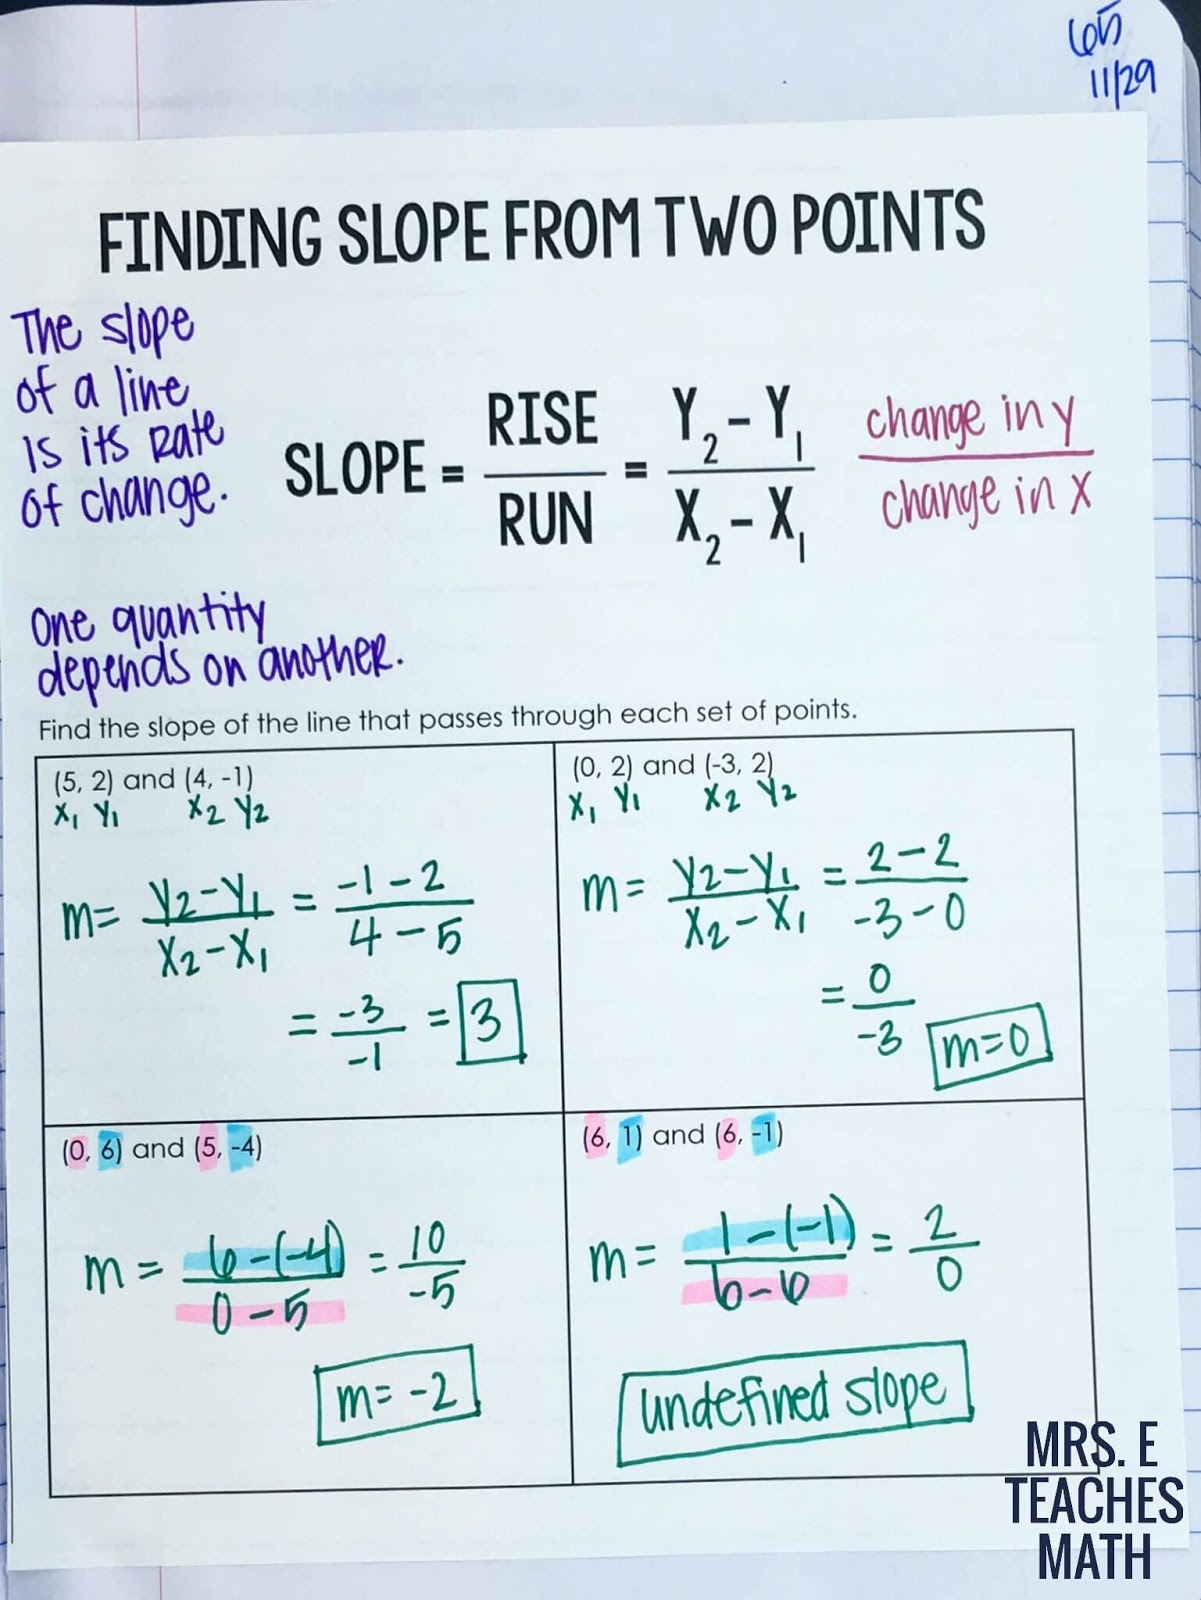 65
11/29
FINDING SLOPE FROM TWO POINTS
The slope
of a line
is its rate
of change.
SLOPE = RISE/RUN = Y₂ - Y₁/X₂ - X₁ change in y/change in x
One quantity
depends on another.
Find the slope of the line that passes through each set of points.
(5, 2) and (4, -1)
X₁ Y₁ X₂ Y₂
m= Y₂-Y₁/X₂-X₁ = -1-2/4-5
= -3/-1 = 3
(0, 2) and (-3, 2)
X₁ Y₁ X₂ Y₂
m= Y₂-Y₁/X₂-X₁ = 2-2/-3-0
= 0/-3
m=0
(0, 6) and (5, -4)
m = 6-(-4)/0-5 = 10/-5
m= -2
(6, 1) and (6, -1)
m = 1-(-1)/6-6 = 2/0
undefined slope
MRS. E
TEACHES
MATH